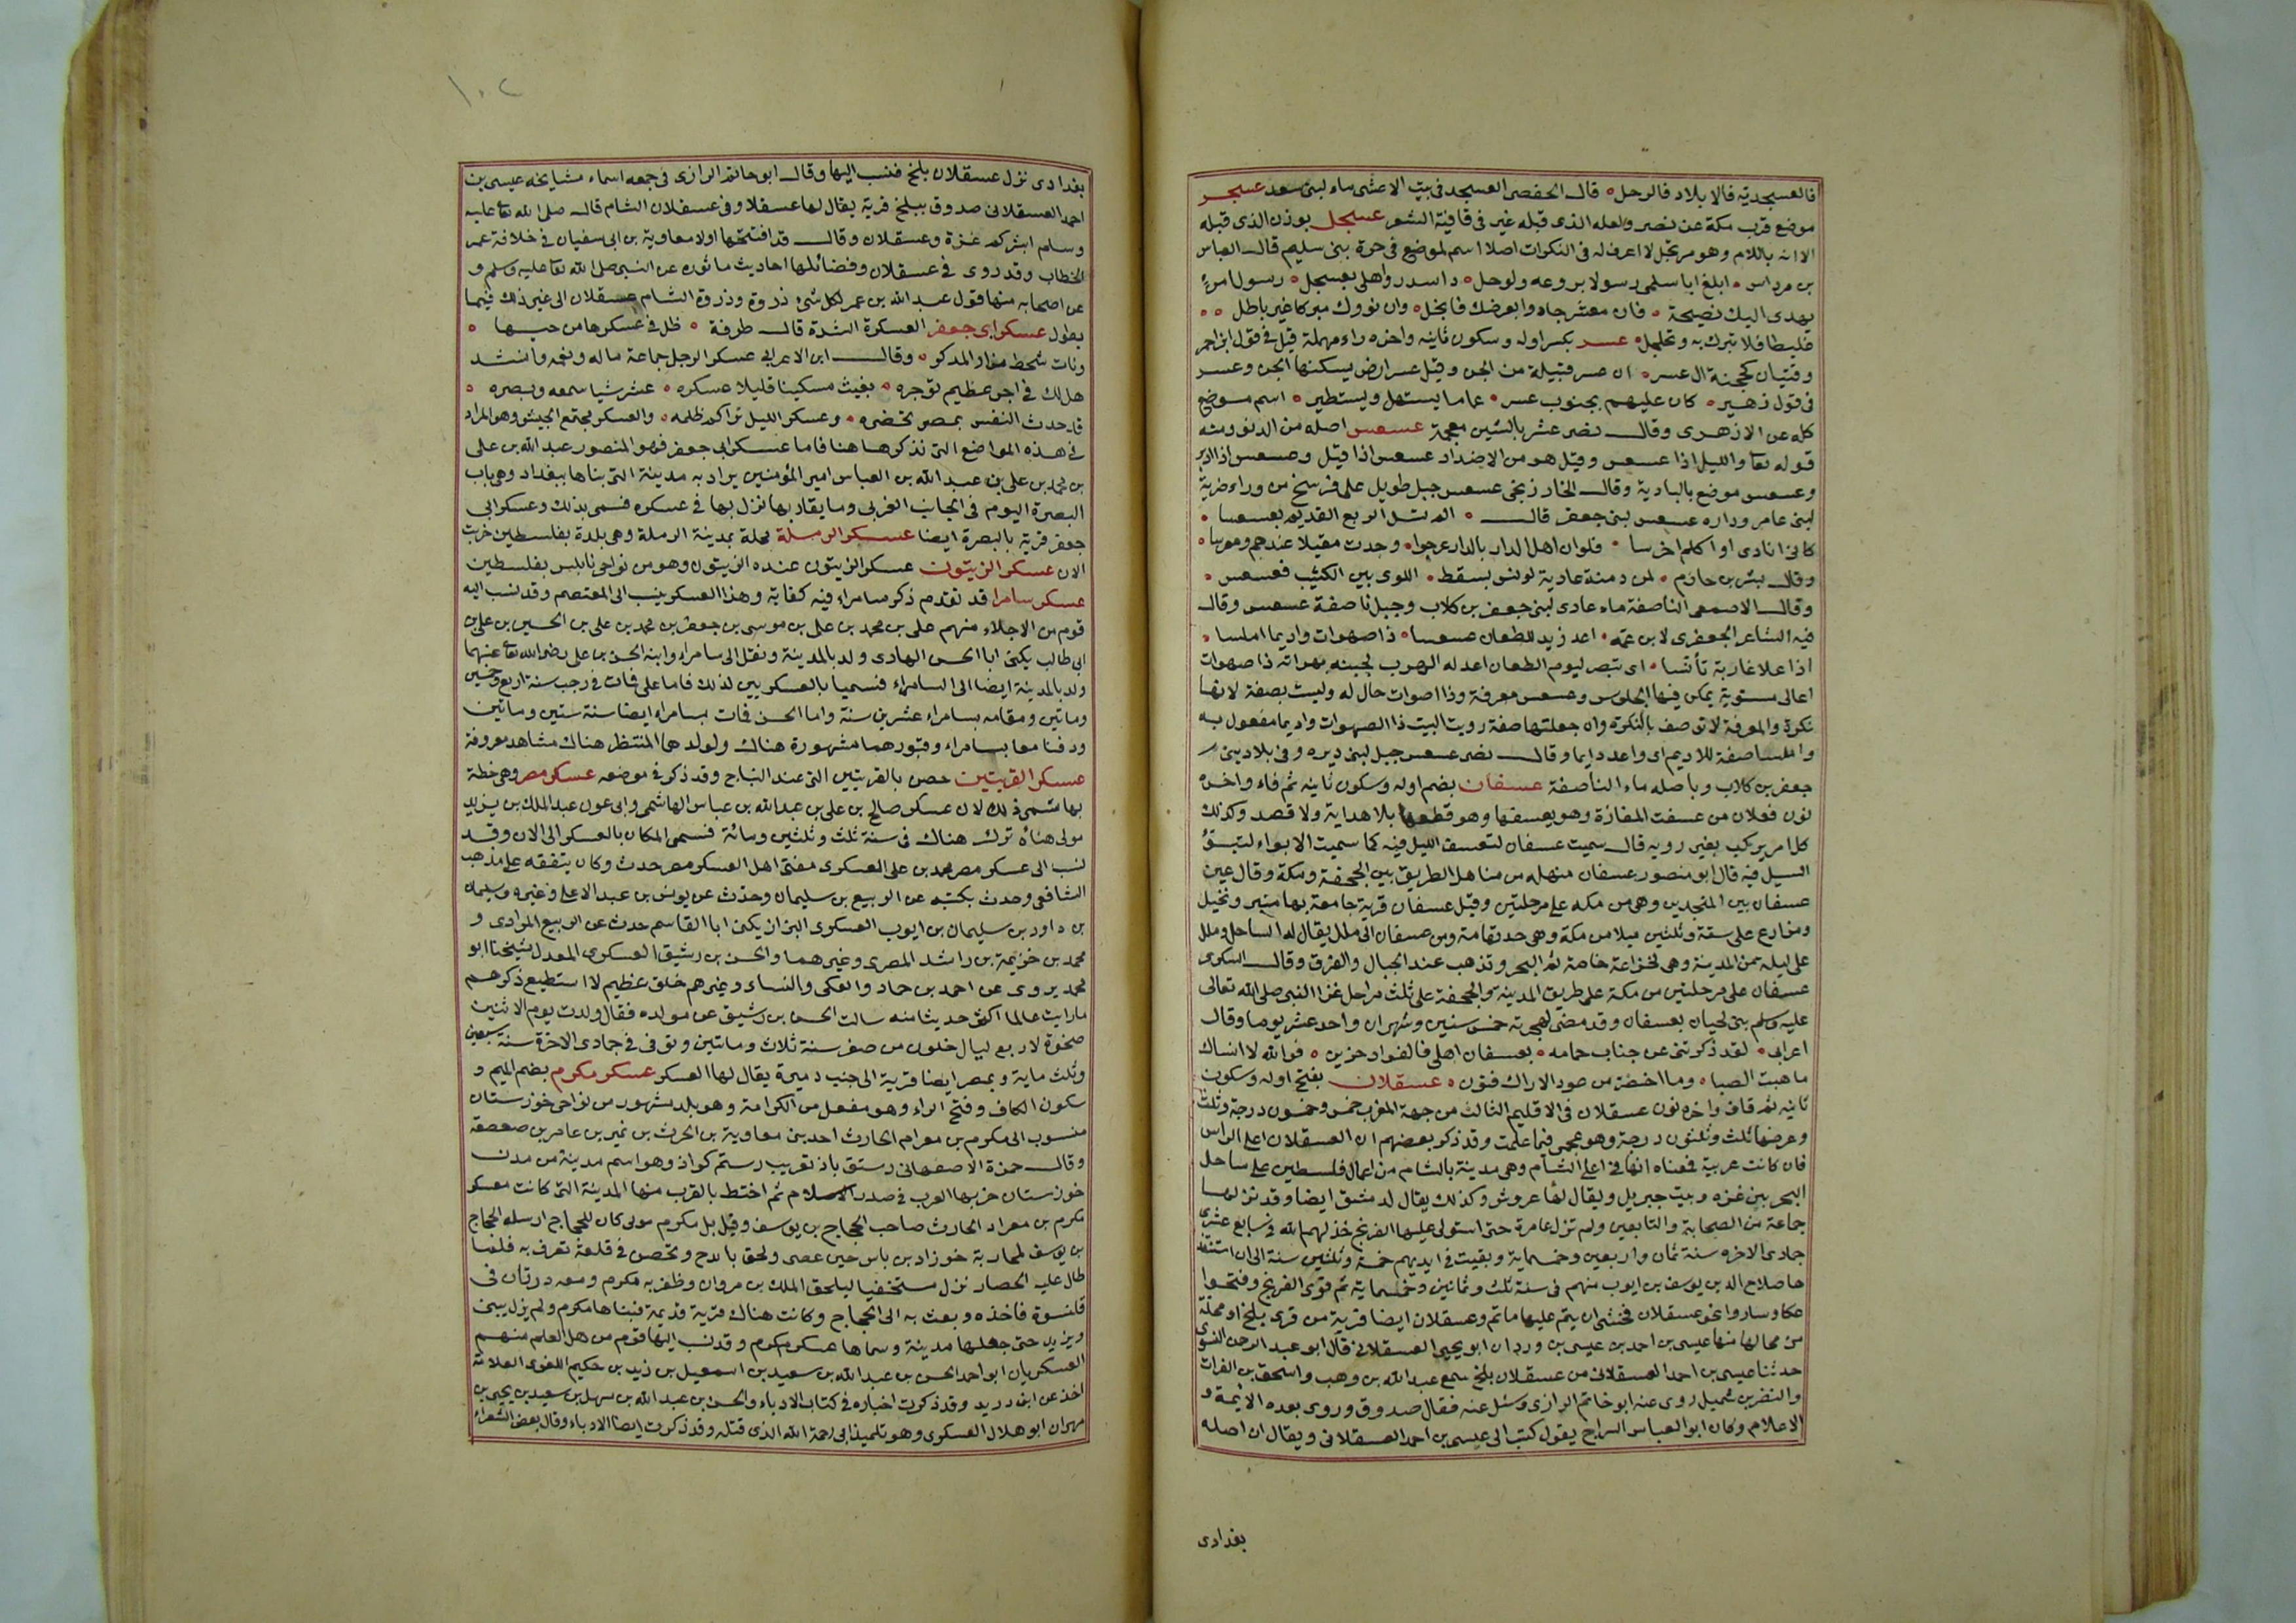 فالعسجدية فالابلاد فالرحل قال الحفصى العسجد فى بيت الاعشى ماء لبنى سعد عسجر
موضع قرب مكة عن نصر ولعله الذى قبله غير فى قافية الشعر عسجل بوزن الذى قبله
الا انه باللام وهو مرتجل لا اعرف له فى النكرات اصلا اسم لموضع فى حرة بنى سليم قال العباس
بن مرداس ابلغ ابا سلمى رسولا يروعه ولوحل داسدر واهلى بعسجل رسول امرئ
يهدى اليك نصيحة فان معشر جادوا بعرضك فابخل وان نووك مبركا غير باطل
غليظا فلا تبرك به وتحلحل عسر بكسر اوله وسكون ثانيه واخره راء مهملة قيل فى قول ابن احمر
وفتيان كجنة ال عسر ان عسر قبيلة من الجن وقيل عسر ارض يسكنها الجن وعسر
فى قول زهير كان عليهم بجنوب عسر غماما يستهل ويستطير اسم موضع
كله عن الازهرى وقال نصر عشر بالشين معجمة عسعس اصله من الدنو ومنه
قوله تعا والليل اذا عسعس وقيل هو من الاضداد عسعس اذا قبل وعسعس اذا ادبر
وعسعس موضع بالبادية وقال الخارزنجى عسعس جبل طويل على فرسخ من وراء ضرية
لبنى عامر ودارة عسعس لبنى جعفر قال الم تسل الربع القديم بعسعسا
كانى انادى او اكلم اخرسا فلو ان اهل الدار بالدار عرجوا وجدت مقيلا عندهم ومعرسا
وقال بشر بن حازم لمن دمنة عادية لم تونس بسقط اللوى بين الكثيب فعسعس
وقال الاصمعى الناصفة ماء عادى لبنى جعفر بن كلاب وجبل ناصفة عسعس وقال
فيه الشاعر الجعفرى لابن عمه اعد زيد للطعان عسعسا ذا صهوات واديما املسا
اذا علا غاربة تأنسا اى تبصر ليوم الطعان اعد له الهرب لجبنه بهراته ذا صهوات
اعالى مستوية يمكن فيها الجلوس وعسعس معرفة وذا صهوات حال له وليست بصفة لانها
نكرة والمعرفة لا توصف بالنكرة وان جعلتها صفة رويت البيت ذا الصهوات واديما مفعول به
واملسا صفة للاديم اى واعد دايما وقال نصر عسعس جبل لبنى دبره وفى بلاد بنى
جعفر بن كلاب وباصله ماء الناصفة عسفان بضم اوله وسكون ثانيه ثم فاء واخره
نون فعلان من عسفت المفازة وهو يعسفها وهو قطعها بلا هداية ولا قصد وكذلك
كل امر يركب بغير رويه قال سميت عسفان لتعسف الليل فيه كما سميت الابواء لتبوّ
السيل فيه قال ابو منصور عسفان منهله من مناهل الطريق بين الجحفة ومكة وقال غيره
عسفان بين المسجدين وهى من مكه على مرحلتين وقيل عسفان قرية جامعة بها منبر ونخيل
ومزارع على ستة وثلثين ميلا من مكة وهى حد تهامة ومن عسفان الى ملل يقال له الساحل وملل
على ليلة من المدينة وهى لخزاعة خاصة ثم البحر وتذهب عند الجبال والغرق وقال السكرى
عسفان على مرحلتين من مكة على طريق المدينة والجحفة على ثلث مراحل غزا النبى صلى الله تعالى
عليه وسلم بنى لحيان بعسفان وقد مضى لهجرته خمس سنين وشهران واحد عشر يوما وقال
اعرابى لقد ذكرتنى عن جناب حمامه بعسفان اهلى فالفواد حزين فوالله لا انساك
ما هبت الصبا وما اخضر من عود الاراك فنون عسقلان بفتح اوله وسكون
ثانيه ثم قاف واخره نون عسقلان فى الاقليم الثالث من جهة المغرب خمس وخمسون درجة وثلث
وعرضها ثلث وثلثون درجة وهو عجمى فيما علمت وقد ذكر بعضهم ان العسقلان اعلى الراس
فان كانت عربية فمعناه انها فى اعلى الشآم وهى مدينة بالشام من اعمال فلسطين على ساحل
البحر بين غزه وبيت جبريل ويقال لها عروش وكذلك يقال لدمشق ايضا وقد نزلها
جماعة من الصحابة والتابعين ولم تزل عامرة حتى استولى عليها الفرنج خذلهم الله فى سابع عشرى
جمادى الاخره سنة ثمان واربعين وخمسماية وبقيت فى ايديهم خمسة وثلثين سنة الى ان استنقذ
ها صلاح الدين يوسف بن ايوب منهم فى سنة ثلث وثمانين وخمسماية ثم قوى الفرنج وفتحوا
عكا وساروا نحو عسقلان فخشى ان يتم عليها ما تم وعسقلان ايضا قرية من قرى بلخ او محلة
من محالها منها عيسى بن احمد بن عيسى بن وردان ابو يحيى العسقلانى قال ابو عبد الرحمن النسوى
حدثنا عيسى بن احمد العسقلانى من عسقلان بلخ سمع عبد الله بن وهب واسحق بن الفرات
والنضر بن شميل روى عنه ابو خاتم الرازى وسئل عنه فقال صدوق وروى بعده الايمة و
الاعلام وكان ابو العباس السراج يقول كتب الى عيسى بن احمد العسقلانى ويقال ان اصله
بغدادى
١٠٢
بغدادى نزل عسقلان بلخ فنسب اليها وقال ابو حاتم الرازى فى جمعه اسماء مشايخه عيسى بن
احمد العسقلانى صدوق ببلخ قرية يقال لها عسقلا وفى عسقلان الشام قال صلى الله تعا عليه
وسلم ابشركم غزة وعسقلان وقال قد افتتحها اولا معاوية بن ابى سفيان فى خلافة عمر
الخطاب وقد روى فى عسقلان وفضائلها احاديث ماثوره عن النبى صلى الله تعا عليه وسلم و
عن اصحابه منها قول عبد الله بن عمر لكل شئ ذروة وذروة الشام عسقلان الى غير ذلك فيما
يطول عسكر ابى جعفر العسكرة الشدة قال طرفة ظل فى عسكرها من حبها
ونات شحط مزار المدكر وقال ابن الاعرابى عسكر الرجل جماعة ماله ونعمه وانشد
هل لك فى اجر عظيم توجره بغيث مسكينا قليلا عسكره عشر شيا سمعه وبصره
قد حدث النفس بمصر تحضره وعسكر الليل تراكم ظلمه والعسكر مجتمع الجيش وهو المراد
فى هذه المواضع التى نذكرها هنا فاما عسكر ابى جعفر فهو المنصور عبد الله بن على
بن محمد بن على بن عبد الله بن العباس امير المؤمنين يراد به مدينة التى بناها ببغداد وهى باب
البصرة اليوم فى الجانب الغربى وما يقاربها نزل بها فى عسكره فسمى بذلك وعسكر ابى
جعفر قرية بالبصرة ايضا عسكر الرملة محلة بمدينة الرملة وهى بلدة بفلسطين خربت
الان عسكر الزيتون عسكر الزيتون عنده الزيتون وهو من نواحى نابلس بفلسطين
عسكر سامرا قد تقدم ذكر سامراء فيه كفاية وهذا العسكر ينسب الى المعتصم وقد نسب اليه
قوم من الاجلاء منهم على بن محمد بن على بن موسى بن جعفر بن محمد بن على بن الحسين بن على بن
ابى طالب يكنى ابا الحسن الهادى ولد بالمدينة ونقل الى سامراء وابنه الحسن بن على رضى الله تعا عنهما
ولد بالمدينة ايضا الى السامراء فسميا بالعسكريين لذلك فاما على فات فى رجب سنة اربع وخمسين
وماتين ومقامه بسامراء عشرين سنة واما الحسن فات بسامراء ايضا سنة ستين وماتين
ودفنا معا بسامراء وقبورهما مشهورة هناك ولولدهما المنتظر هناك مشاهد معروفة
عسكر القريتين حصن بالقريتين التى عند النباج وقد ذكر فى موضعه عسكر مصر وهى خطة
بها سمى ذلك لان عسكر صالح بن على بن عبد الله بن عباس الهاشمى وابى عون عبد الملك بن يزيد
مولى هناة نزل هناك فى سنة ثلث وثلثين ومائة فسمى المكان بالعسكر الى الان وقد
نسب الى عسكر مصر محمد بن على العسكرى مفتى اهل العسكر مصر حدث وكان يتفقه على مذهب
الشافعى وحدث بكتبه عن الربيع بن سليمان وحدث عن يونس بن عبد الاعلى وغيره وسليمان
بن داود بن سليمان بن ايوب العسكرى البزاز يكنى ابا القاسم حدث عن الربيع المرادى و
محمد بن خزيمة بن راشد المصرى وغيرهما والحسن بن رشيق العسكرى المعدل شيخنا ابو
محمد يروى عن احمد بن حماد والعكى والنساء وغيرهم خلق عظيم لا استطيع ذكرهم
ما رايت عالما اكثر حديثا منه سالت الحسن بن رشيق عن مولده فقال ولدت يوم الاثنين
ضحوة لاربع ليال خلون من صفر سنة ثلاث وماتين وتوفى فى جمادى الاخرة سنة سبعين
وثلث ماية وبمصر ايضا قرية الى جنب دميرة يقال لها العسكر عسكر مكرم بضم الميم و
سكون الكاف وفتح الراء وهو مفعل من الكرامة وهو بلد مشهور من نواحى خوزستان
منسوب الى مكرم بن معرام الحارث احد بنى معاوية بن الحرث بن نمير بن عامر بن صعصعة
وقال حمزة الاصفهانى رستق باذ تعريب رستم كواذ وهو اسم مدينة من مدن
خوزستان خربها العرب فى صدر الاسلام ثم اختط بالقرب منها المدينة التى كانت معسكر
مكرم بن معراد الحارث صاحب الحجاج بن يوسف وقيل بل مكرم مولى كان للحجاج ارسله الحجاج
بن يوسف لمحاربة خوزاد بن باس حين عصى ولحق بايدج وتحصن فى قلعة تعرف به فلما
طال عليه الحصار نزل مستخفيا ليلحق الملك بن مروان وظفر به مكرم ومعه درتان فى
قلنسوة فاخذه وبعث به الى الحجاج وكانت هناك قرية قديمة فبناها مكرم ولم يزل يبنى
ويزيد حتى جعلها مدينة وسماها عسكر مكرم وقد نسب اليها قوم من اهل العلم منهم
العسكريان ابو احمد الحسن بن عبد الله بن سعيد بن اسمعيل بن زيد بن حكيم اللغوى العلامة
اخذ عن ابن دريد وقد ذكرت اخباره فى كتاب الادباء والحسن بن عبد الله بن سهل بن سعيد بن يحيى بن
مهران ابو هلال العسكرى وهو تلميذ ابى احمد رحمة الله الذى قبله وقد ذكرت ايضا الادباء وقال بعض الشعراء